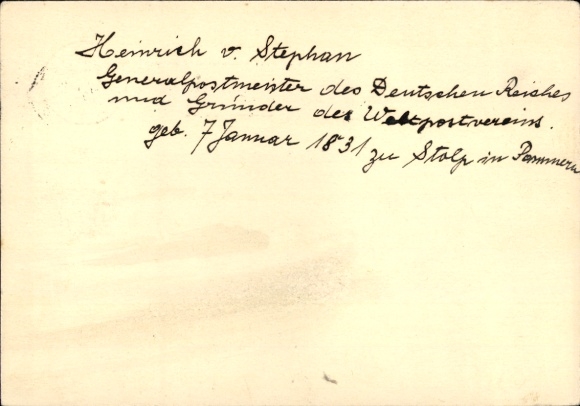 Heinrich v. Stephan
Generalpostmeister des Deutschen Reiches
und Gründer des Weltpostvereins.
geb. 7 Januar 1831 zu Stolp in Pommern